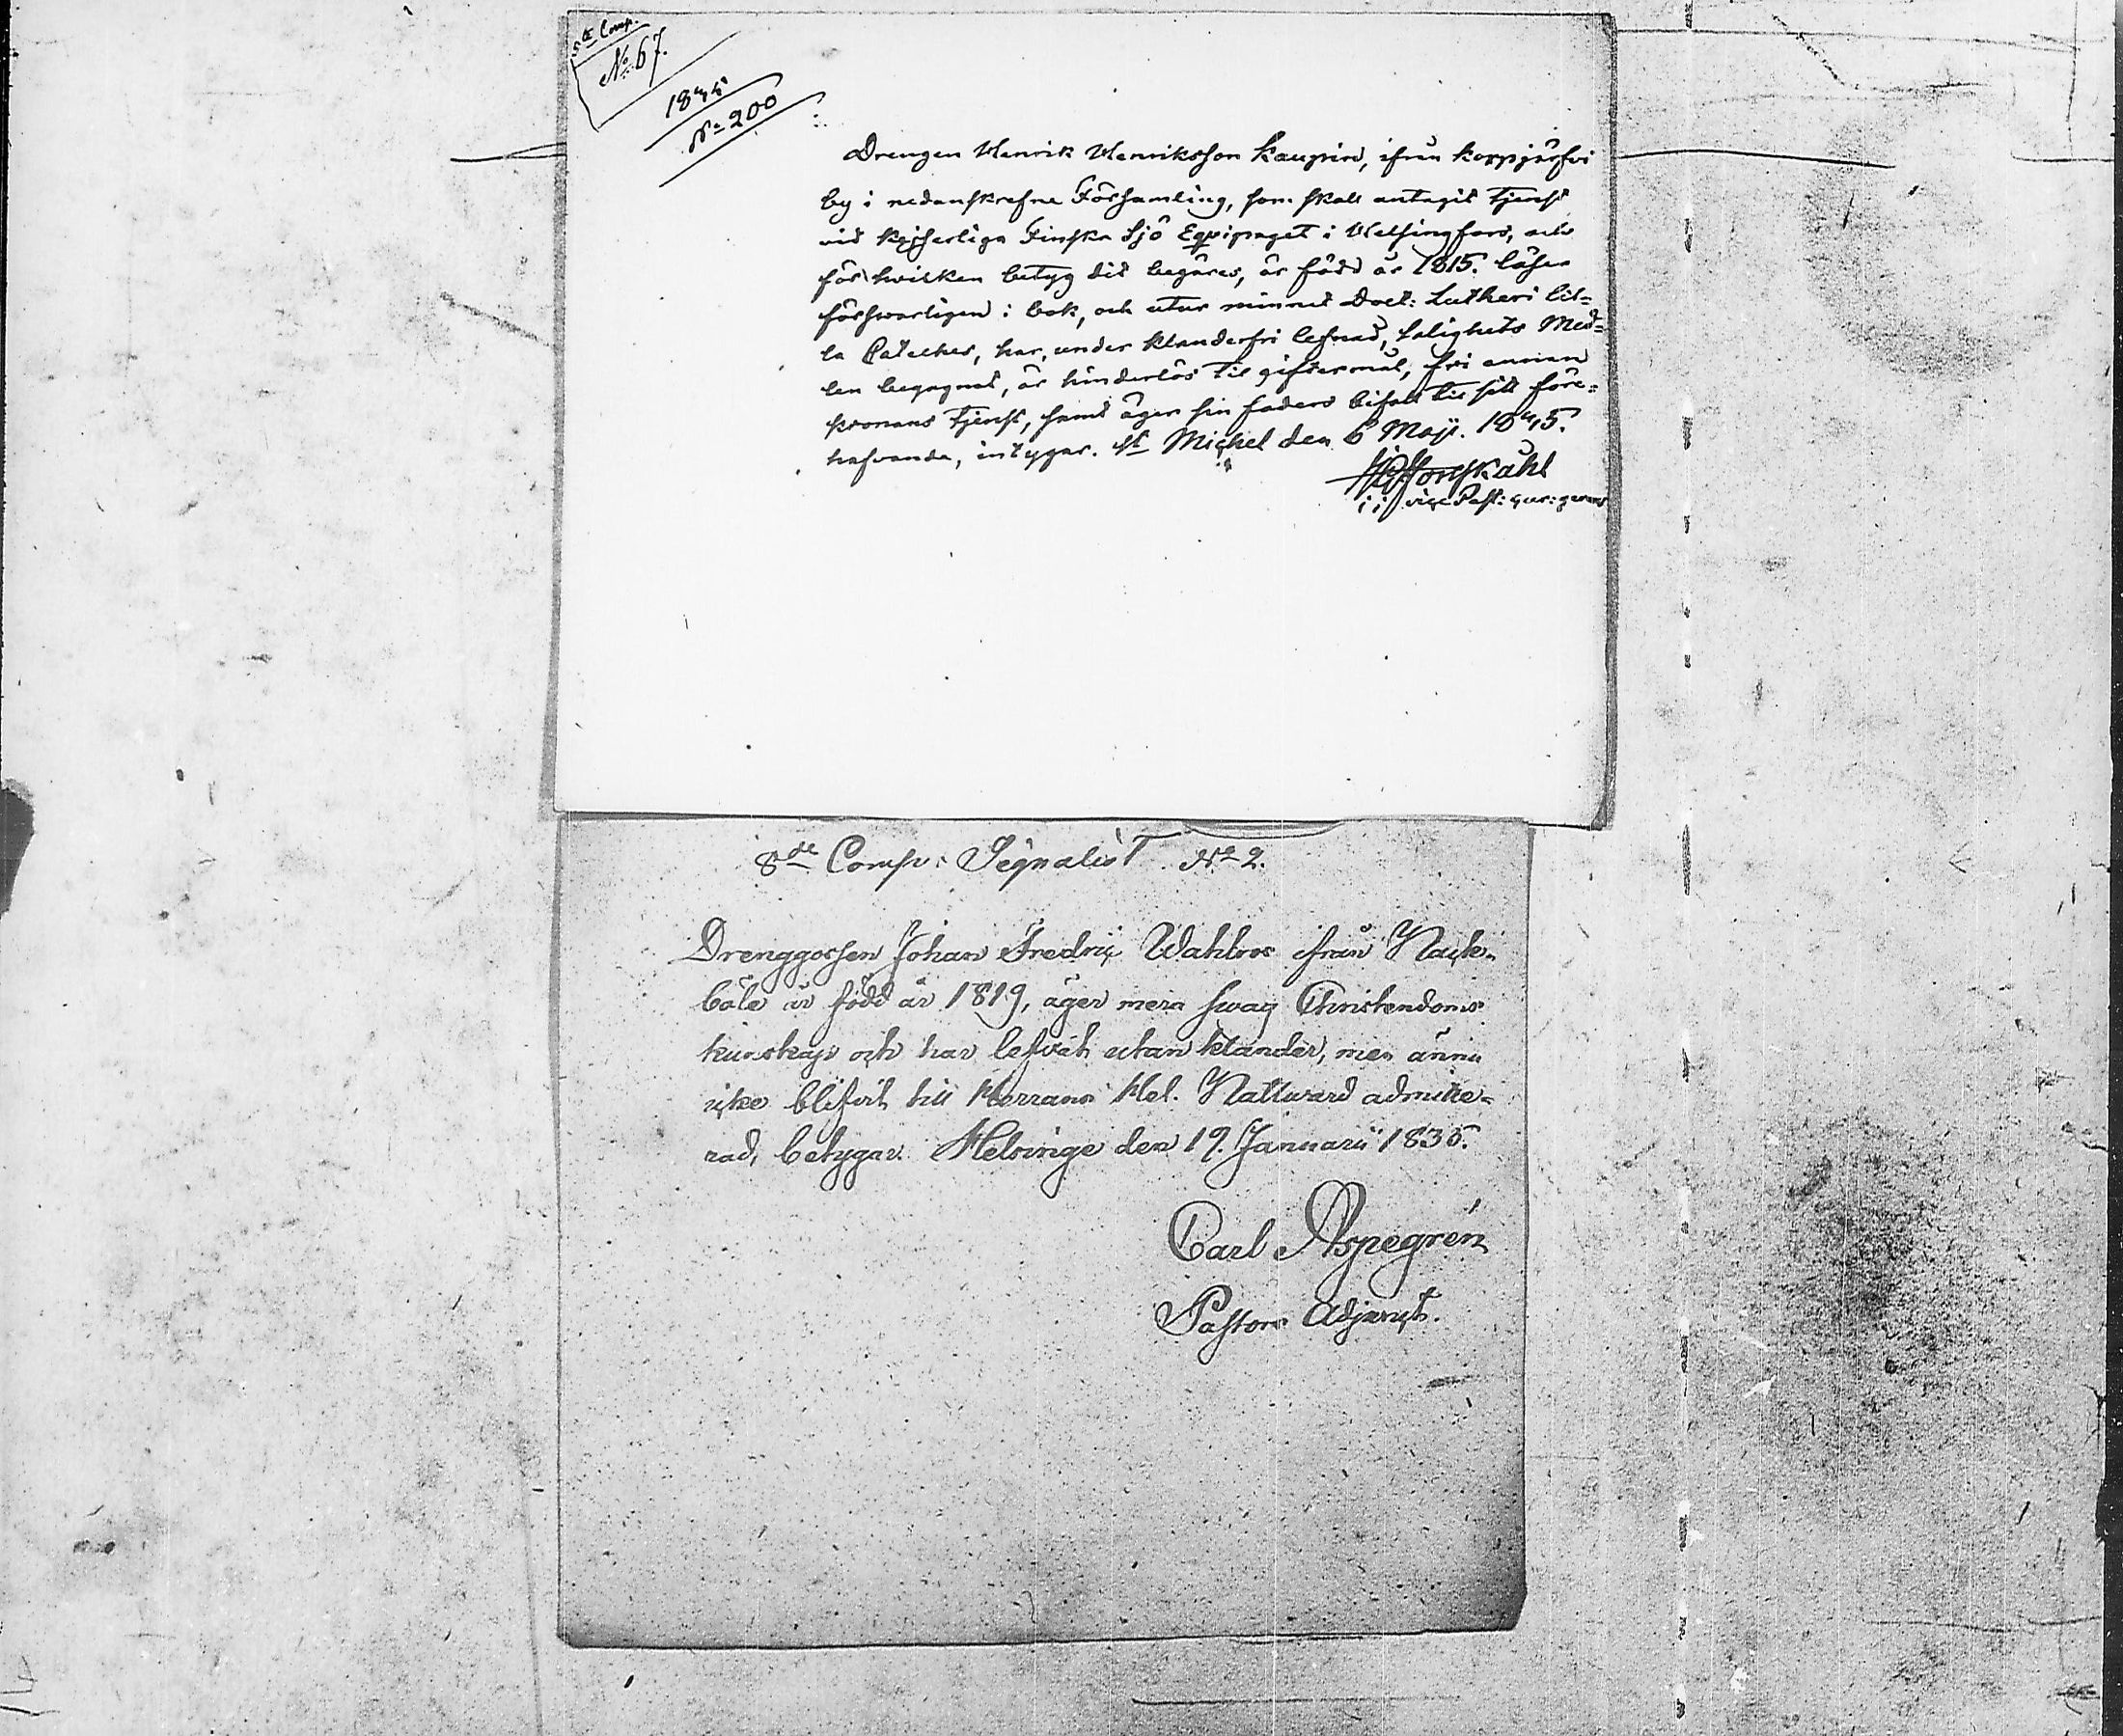 5te Comp.
No 67.
1845
No 200
Drengen Henrik Henriksson Kaupin, ifrån Koppjärfvi
by i nedanskrefne Församling, som skall antagit tjenst
vid Kejserliga Finska Sjö Eqvipaget i Helsingfors, och
för hvilken betyg dit begäres, är född år 1815. läser
försvarligen i bok, och utur minnet Doct: Lutheri lil-
la Cateches, har, under klanderfri lefnad, Salighets Med-
len begagnat, är hinderlös til giftermål, fri annan
kronans tjenst, samt äger sin faders bifall til sitt före-
hafvande, intygar. St Michel den 6 Maji. 1845.
Forsskåhl
vice Past:
8de Comp: Signalist No 2.
Drenggossen Johan Fredric Wahlroos ifrån Nack-
böle är född år 1819, äger mera swag Christendoms
kunskap och har lefvat utan klander, men ännu
icke blifvit till Herrans Hel. Nattward admitte-
rad, betygar. Helsinge den 19. Januarii 1835.
Carl Aspegrén
Pastors Adjunct.